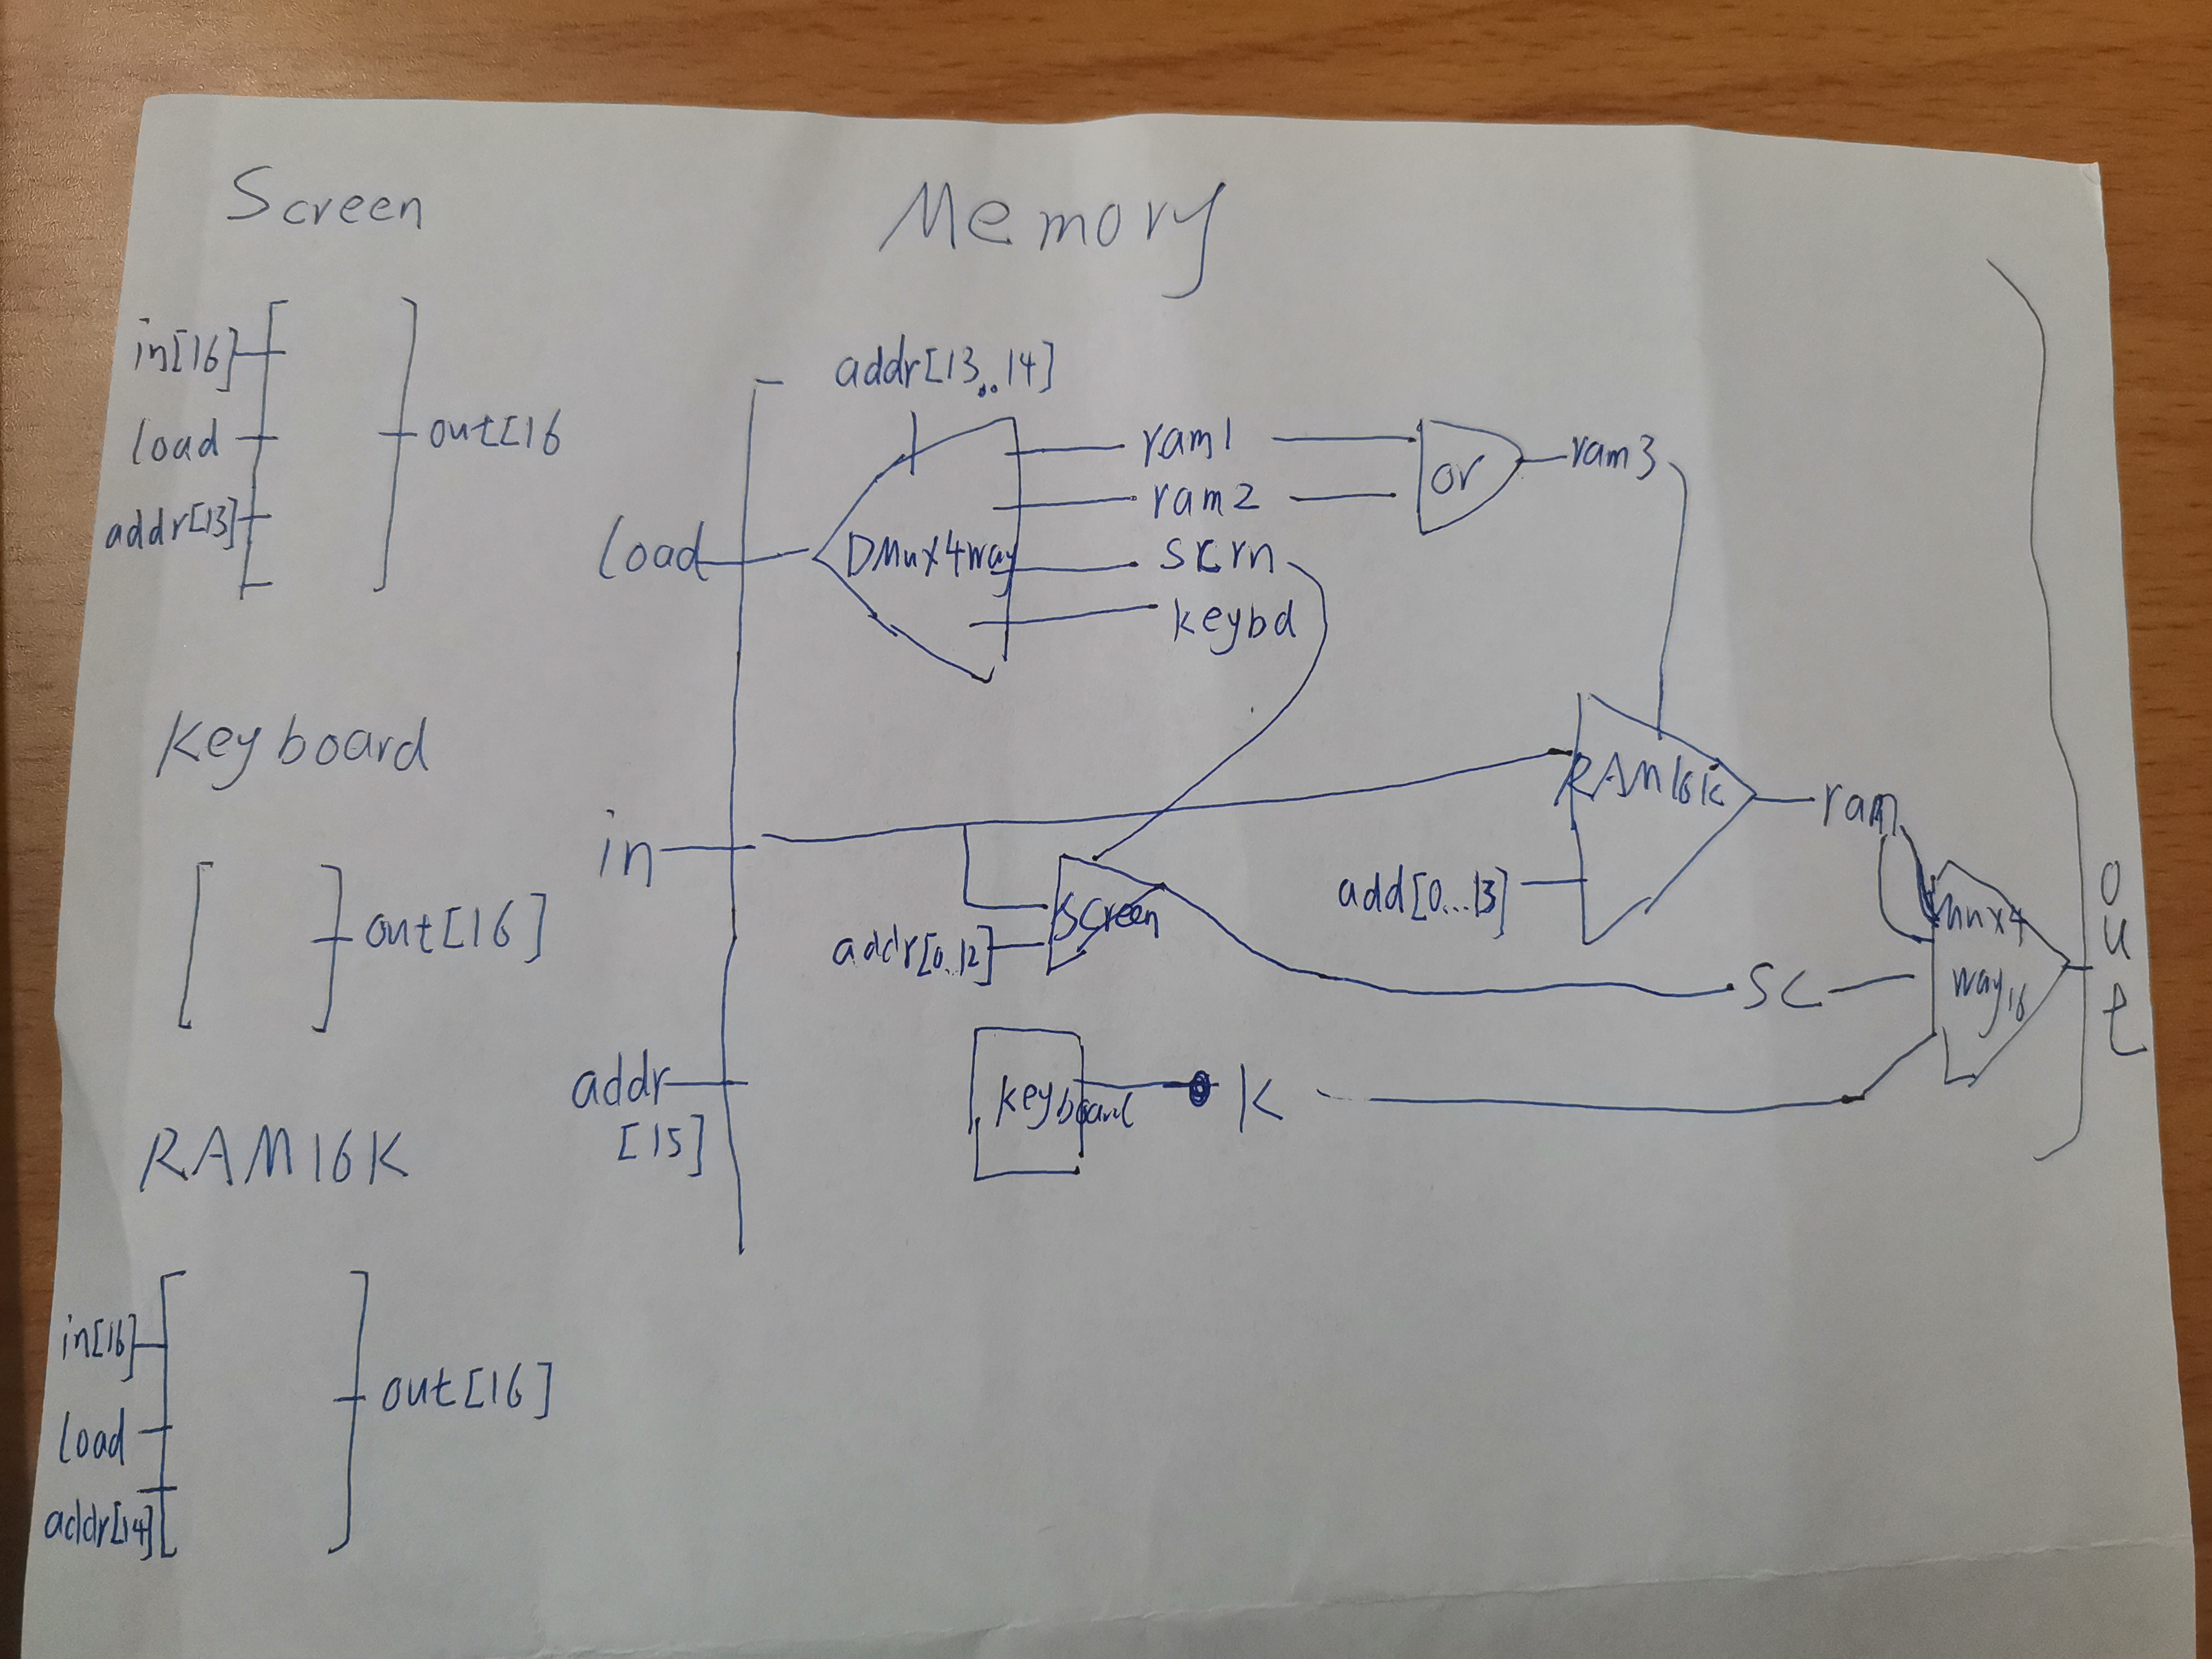 Screen
in[16]
load
addr[13]
out[16
Keyboard
out[16]
RAM16K
in[16]
load
addr[14]
out[16]
Memory
addr[13..14]
load
DMux4way
ram1
ram2
scrn
keybd
or
ram3
in
RAM16K
add[0...13]
ram
screen
addr[0..12]
sc
mux4
way16
out
addr
[15]
keyboard
K